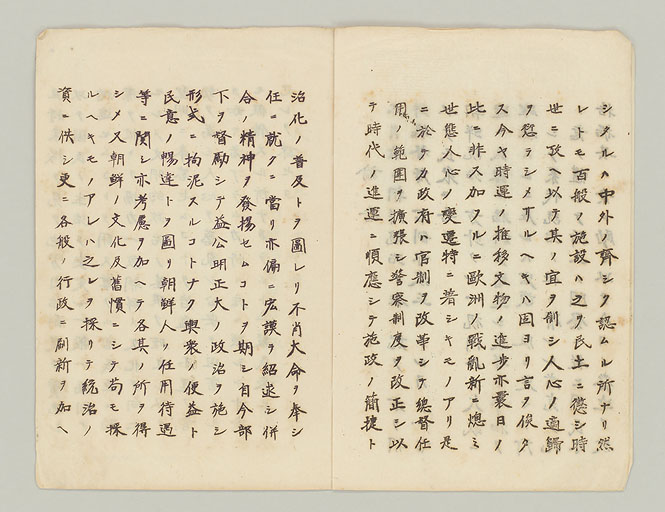 シタルハ中外ノ齊シク認ムル所ナリ然
レトモ百般ノ施設ハ之ヲ民土ニ徴シ時
世ニ攷ヘ以テ其ノ宜ヲ制シ人心ノ適歸
ヲ愆ラシメサルヘキハ固ヨリ言ヲ俟タ
ス今ヤ時運ノ推移文物ノ進步亦曩日ノ
比ニ非ス加フルニ歐洲ノ戰亂新ニ熄ミ
世態人心ノ變遷特ニ著シキモノアリ是
ニ於テカ政府ハ官制ヲ改革シテ總督任
用ノ範圍ヲ擴張シ警察制度ヲ改正シ以
テ時代ノ進運ニ順應シテ施政ノ簡捷ト
治化ノ普及トヲ圖レリ不肖大命ヲ奉シ
任ニ就クニ當リ亦偏ニ宏謨ヲ紹述シ併
合ノ精神ヲ發揚セムコトヲ期シ自今部
下ヲ督勵シテ益公明正大ノ政治ヲ施シ
形式ニ拘泥スルコトナク輿衆ノ便益ト
民意ノ暢達トヲ圖リ朝鮮人ノ任用待遇
等ニ關シ亦考慮ヲ加ヘテ各其ノ所ヲ得
シメ又朝鮮ノ文化及舊慣ニシテ苟モ採
ルヘキモノアレハ之レヲ採リテ統治ノ
資ニ供シ更ニ各般ノ行政ニ刷新ヲ加ヘ